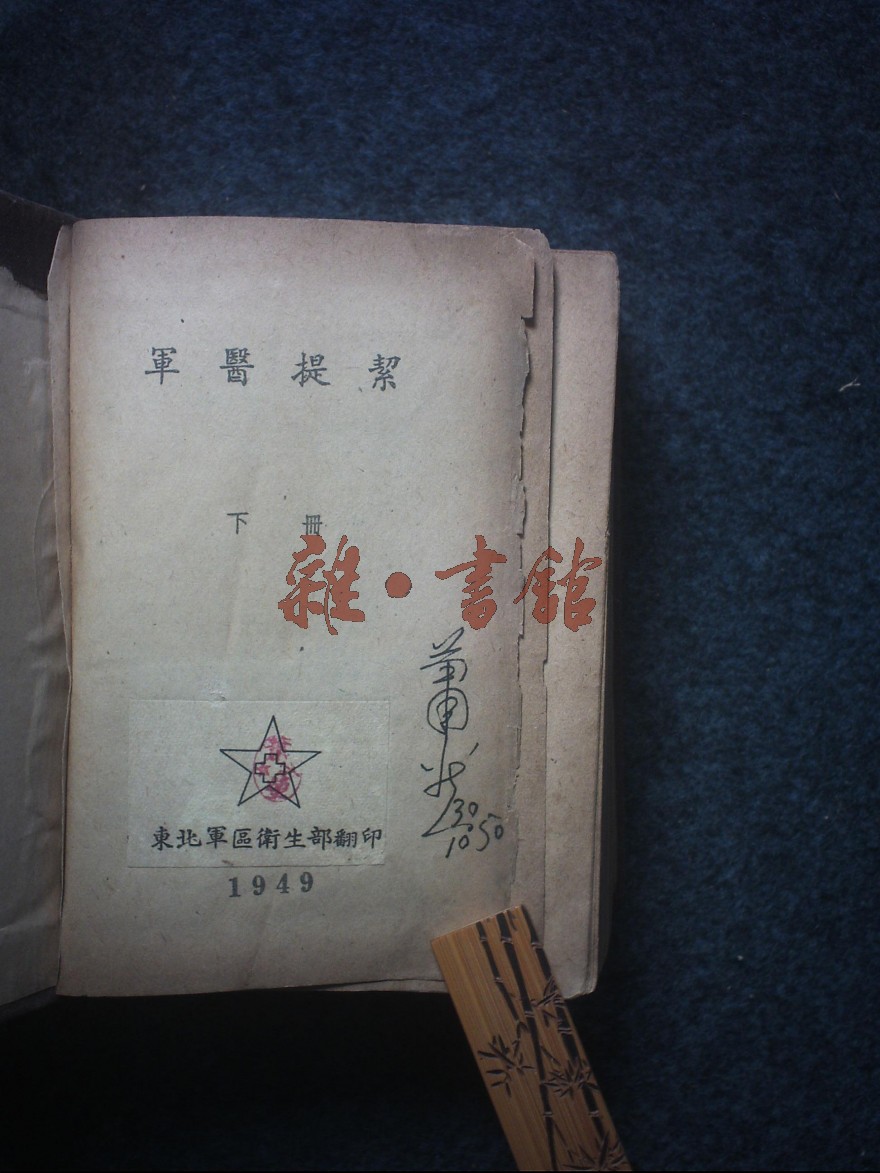 軍醫提絜
下冊
雜·書館
東北軍區衛生部翻印
1949
30
10 50